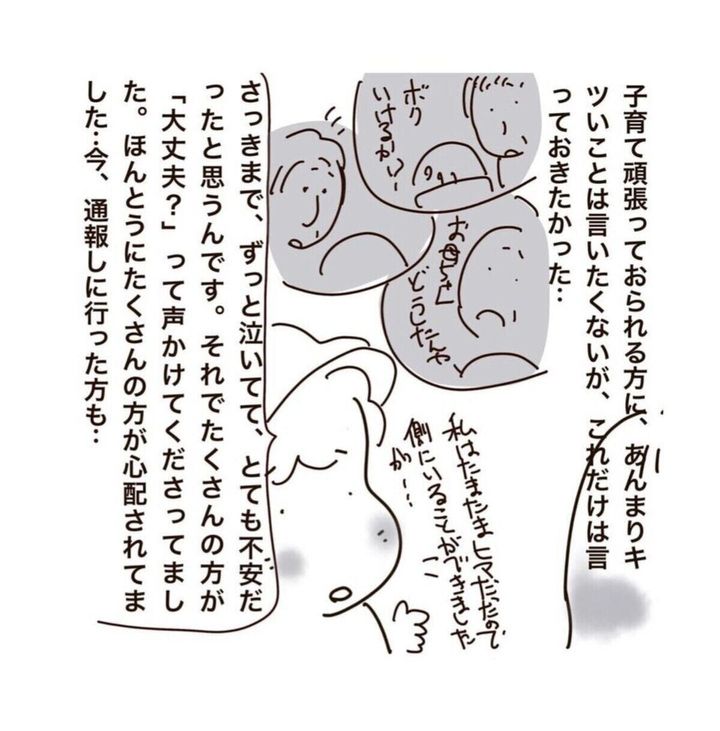 子育て頑張っておられる方に、あんまりキ
ツいことは言いたくないが、これだけは言
っておきたかった…
ボク
いけるか？
お母ちゃん
どうしたんや
私はたまたまヒマだったので
側にいることができました
が…
さっきまで、ずっと泣いてて、とても不安だ
ったと思うんです。それでたくさんの方が
「大丈夫？」って声かけてくださってまし
た。ほんとうにたくさんの方が心配されてま
した…今、通報しに行った方も…